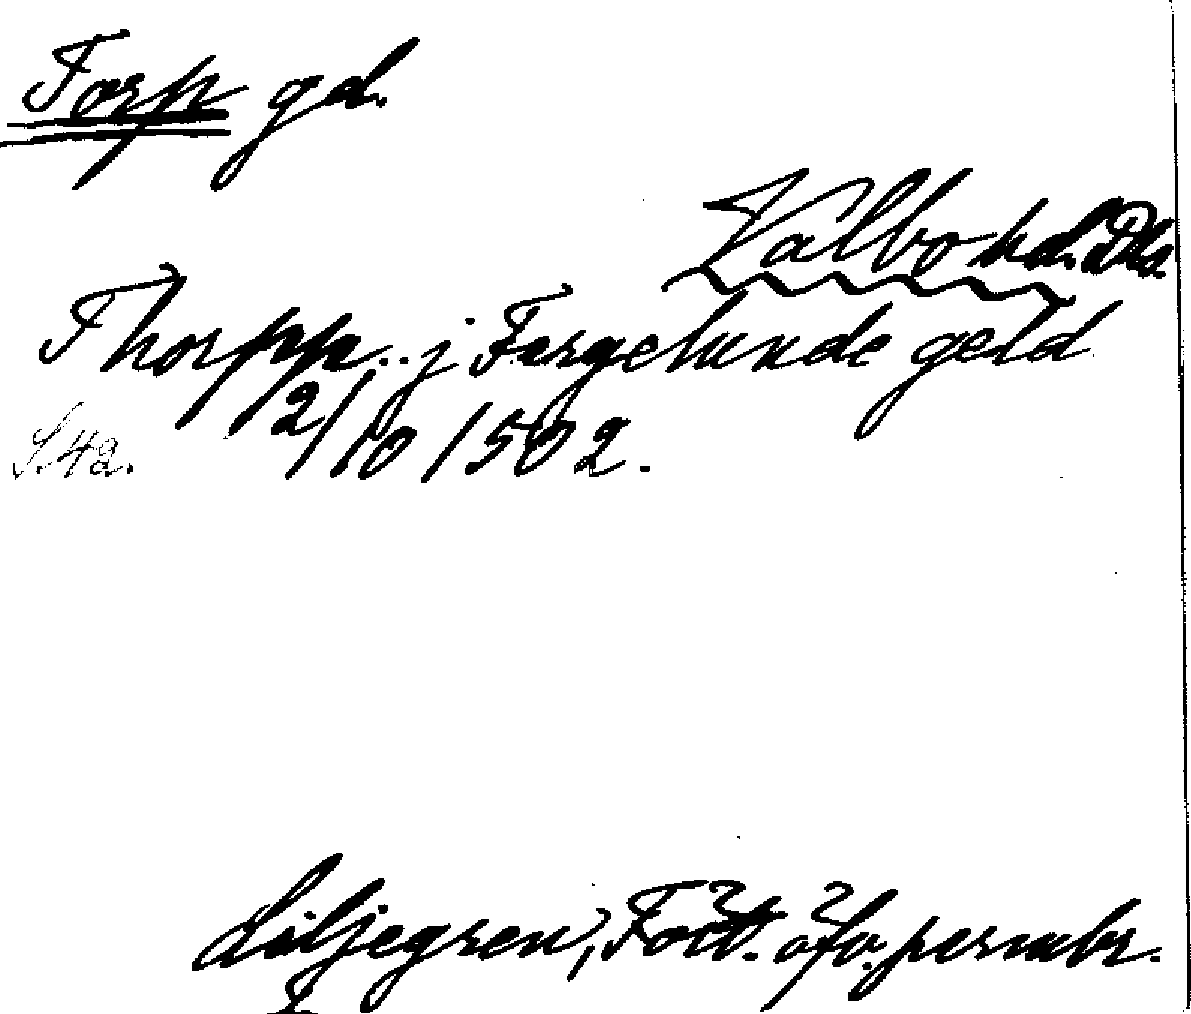 Torp gd.
Valbo hd. Dls.
Thorpp.. j Fergelunde geld
S. 42. 2/10 1502.
Liljegren, Fört. öfv. permbr.
I.